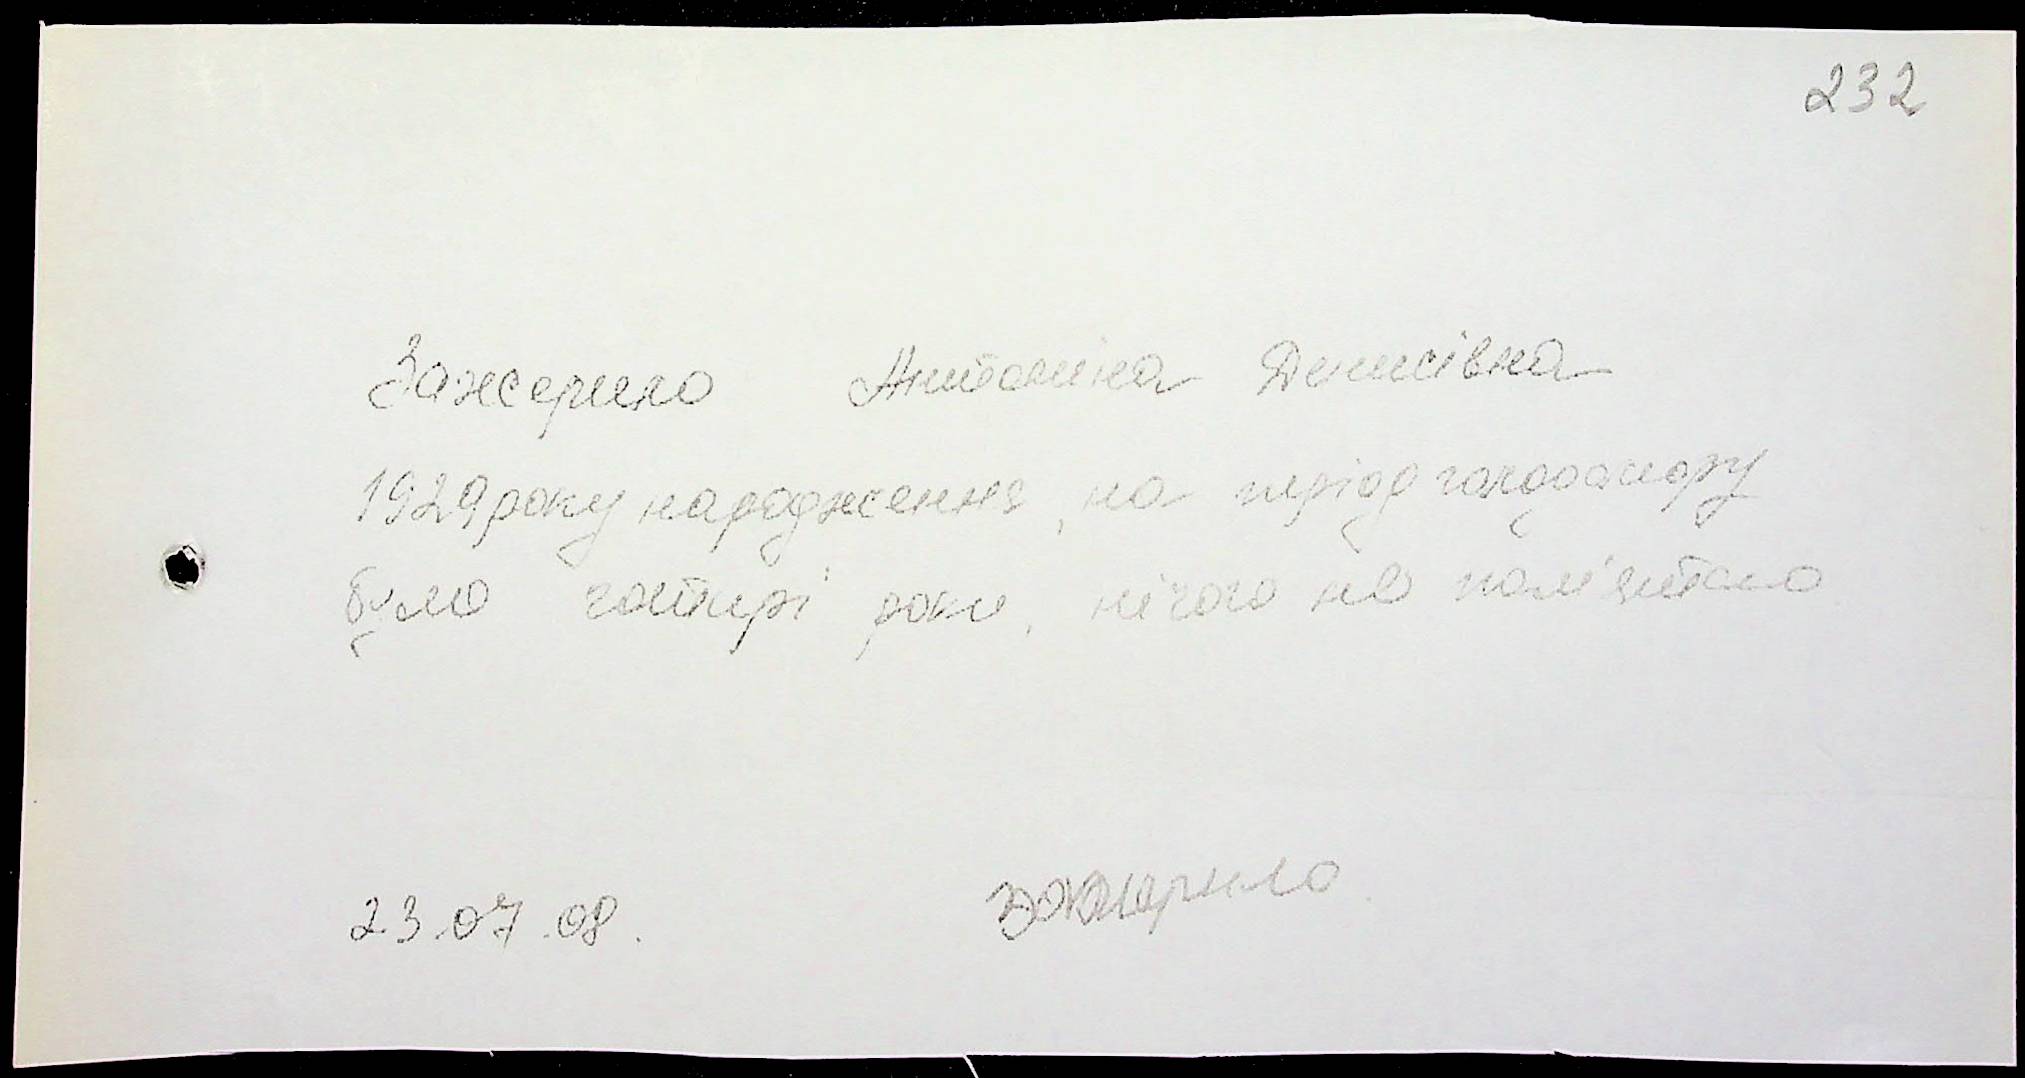 232
Зажерило Антоніна Денисівна
1929 року народження, на період голодомору
було чотирі роки, нічого не пам'ятаю
23.07.08. Зажерило